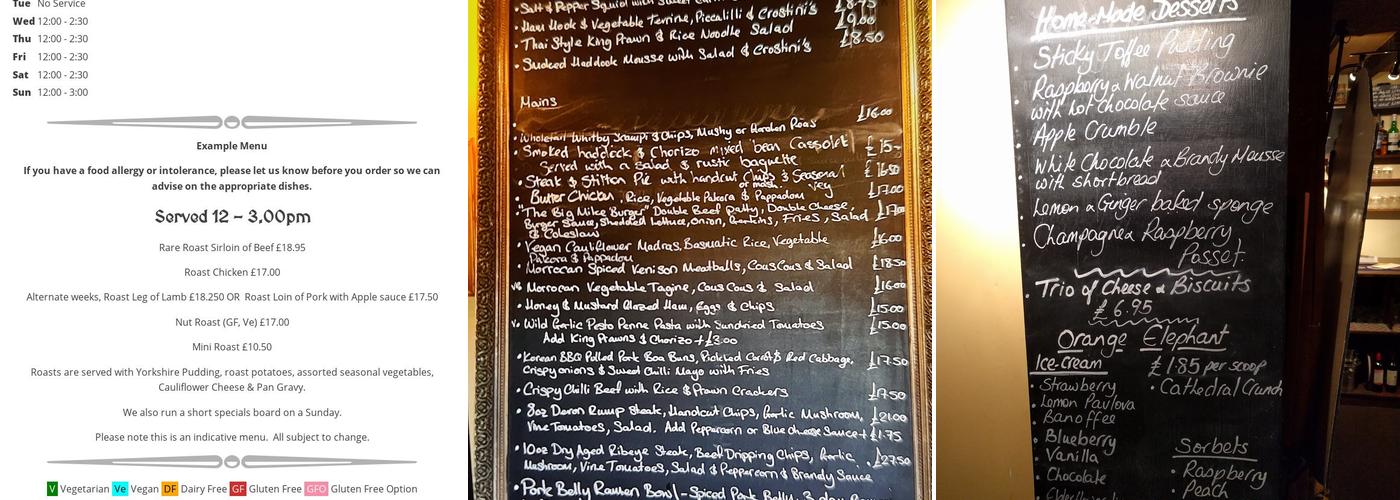 Tue No Service
Wed 12:00 - 2:30
Thu 12:00 - 2:30
Fri 12:00 - 2:30
Sat 12:00 - 2:30
Sun 12:00 - 3:00
Example Menu
If you have a food allergy or intolerance, please let us know before you order so we can
advise on the appropriate dishes.
Served 12 – 3.00pm
Rare Roast Sirloin of Beef £18.95
Roast Chicken £17.00
Alternate weeks, Roast Leg of Lamb £18.250 OR Roast Loin of Pork with Apple sauce £17.50
Nut Roast (GF, Ve) £17.00
Mini Roast £10.50
Roasts are served with Yorkshire Pudding, roast potatoes, assorted seasonal vegetables,
Cauliflower Cheese & Pan Gravy.
We also run a short specials board on a Sunday.
Please note this is an indicative menu. All subject to change.
V Vegetarian Ve Vegan DF Dairy Free GF Gluten Free GFO Gluten Free Option
• Salt & Pepper Squid with £8.75
• Ham Hock & Vegetable Terrine, Piccalilli & Crostini's £9.00
• Thai Style King Prawn & Rice Noodle Salad £8.50
• Smoked Haddock Mousse with Salad & Crostini's
Mains
• Wholetail Whitby Scampi & Chips, Mushy or Garden Peas £16.00
• Smoked haddock & Chorizo mixed bean Cassolet £15-
Served with a Salad & rustic baguette
• Steak & Stilton Pie with handcut Chips & Seasonal £16.50
or mash. Veg
• Butter Chicken, Rice, Vegetable Pakora & Pappadom £17.00
• "The Big Mike Burger" Double Beef Patty, Double Cheese,
Burger Sauce, Shredded Lettuce, Onion, Gherkins, Fries, Salad £17.00
& Coleslaw
• Vegan Cauliflower Madras, Basmatic Rice, Vegetable £16.00
Pakora & Pappadom
• Morrocan Spiced Venison Meatballs, CousCous & Salad £18.50
• Morrocan Vegetable Tagine, Cous Cous & Salad £16.00
• Honey & Mustard Glazed Ham, Eggs & Chips £15.00
V• Wild Garlic Pesto Penne Pasta with Sundried Tomatoes £15.00
Add King Prawns & Chorizo + £3.00
• Korean BBQ Pulled Pork Boa Buns, Pickled Carrot & Red Cabbage, £17.50
Crispy onions & Sweet Chilli Mayo with Fries
• Crispy Chilli Beef with Rice & Prawn Crackers £17.50
• 8oz Devon Rump Steak, Handcut Chips, Garlic Mushroom, £21.00
Vine Tomatoes, Salad. Add Peppercorn or Blue cheese Sauce + £1.75
• 10oz Dry Aged Ribeye Steak, Beef Dripping Chips, Garlic £27.50
Mushroom, Vine Tomatoes, Salad & Peppercorn & Brandy Sauce
• Pork Belly Ramen Bowl - Spiced Pork Belly,
Home-Made Desserts
• Sticky Toffee Pudding
• Raspberry & Walnut Brownie
with hot chocolate sauce
• Apple Crumble
• White Chocolate & Brandy Mousse
with shortbread
• Lemon & Ginger baked sponge
• Champagne & Raspberry
Posset.
• Trio of Cheese & Biscuits
£6.95
Orange Elephant
Ice-Cream £1.85 per scoop
• Strawberry • Cathedral Crunch
• Lemon Pavlova
• Banoffee
• Blueberry
• Vanilla
• Chocolate
Sorbets
• Raspberry
• Peach